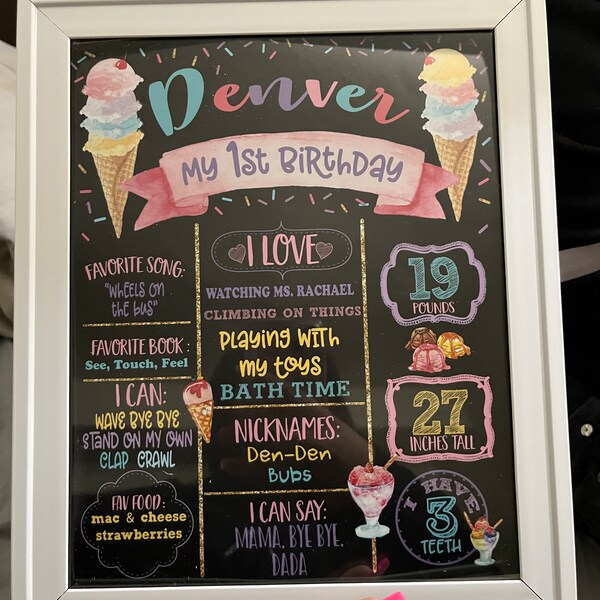 Denver
My 1st Birthday
FAVORITE SONG:
"Wheels on
the bus"
FAVORITE BOOK:
See, Touch, Feel
I CAN:
WAVE BYE BYE
STAND ON MY OWN
CLAP CRAWL
FAV FOOD:
mac & cheese
strawberries
I LOVE
WATCHING MS. RACHAEL
CLIMBING ON THINGS
Playing with
my toys
BATH TIME
NICKNAMES:
Den-Den
Bubs
I CAN SAY:
MAMA, BYE BYE,
DADA
19
POUNDS
27
INCHES TALL
I HAVE
3
TEETH